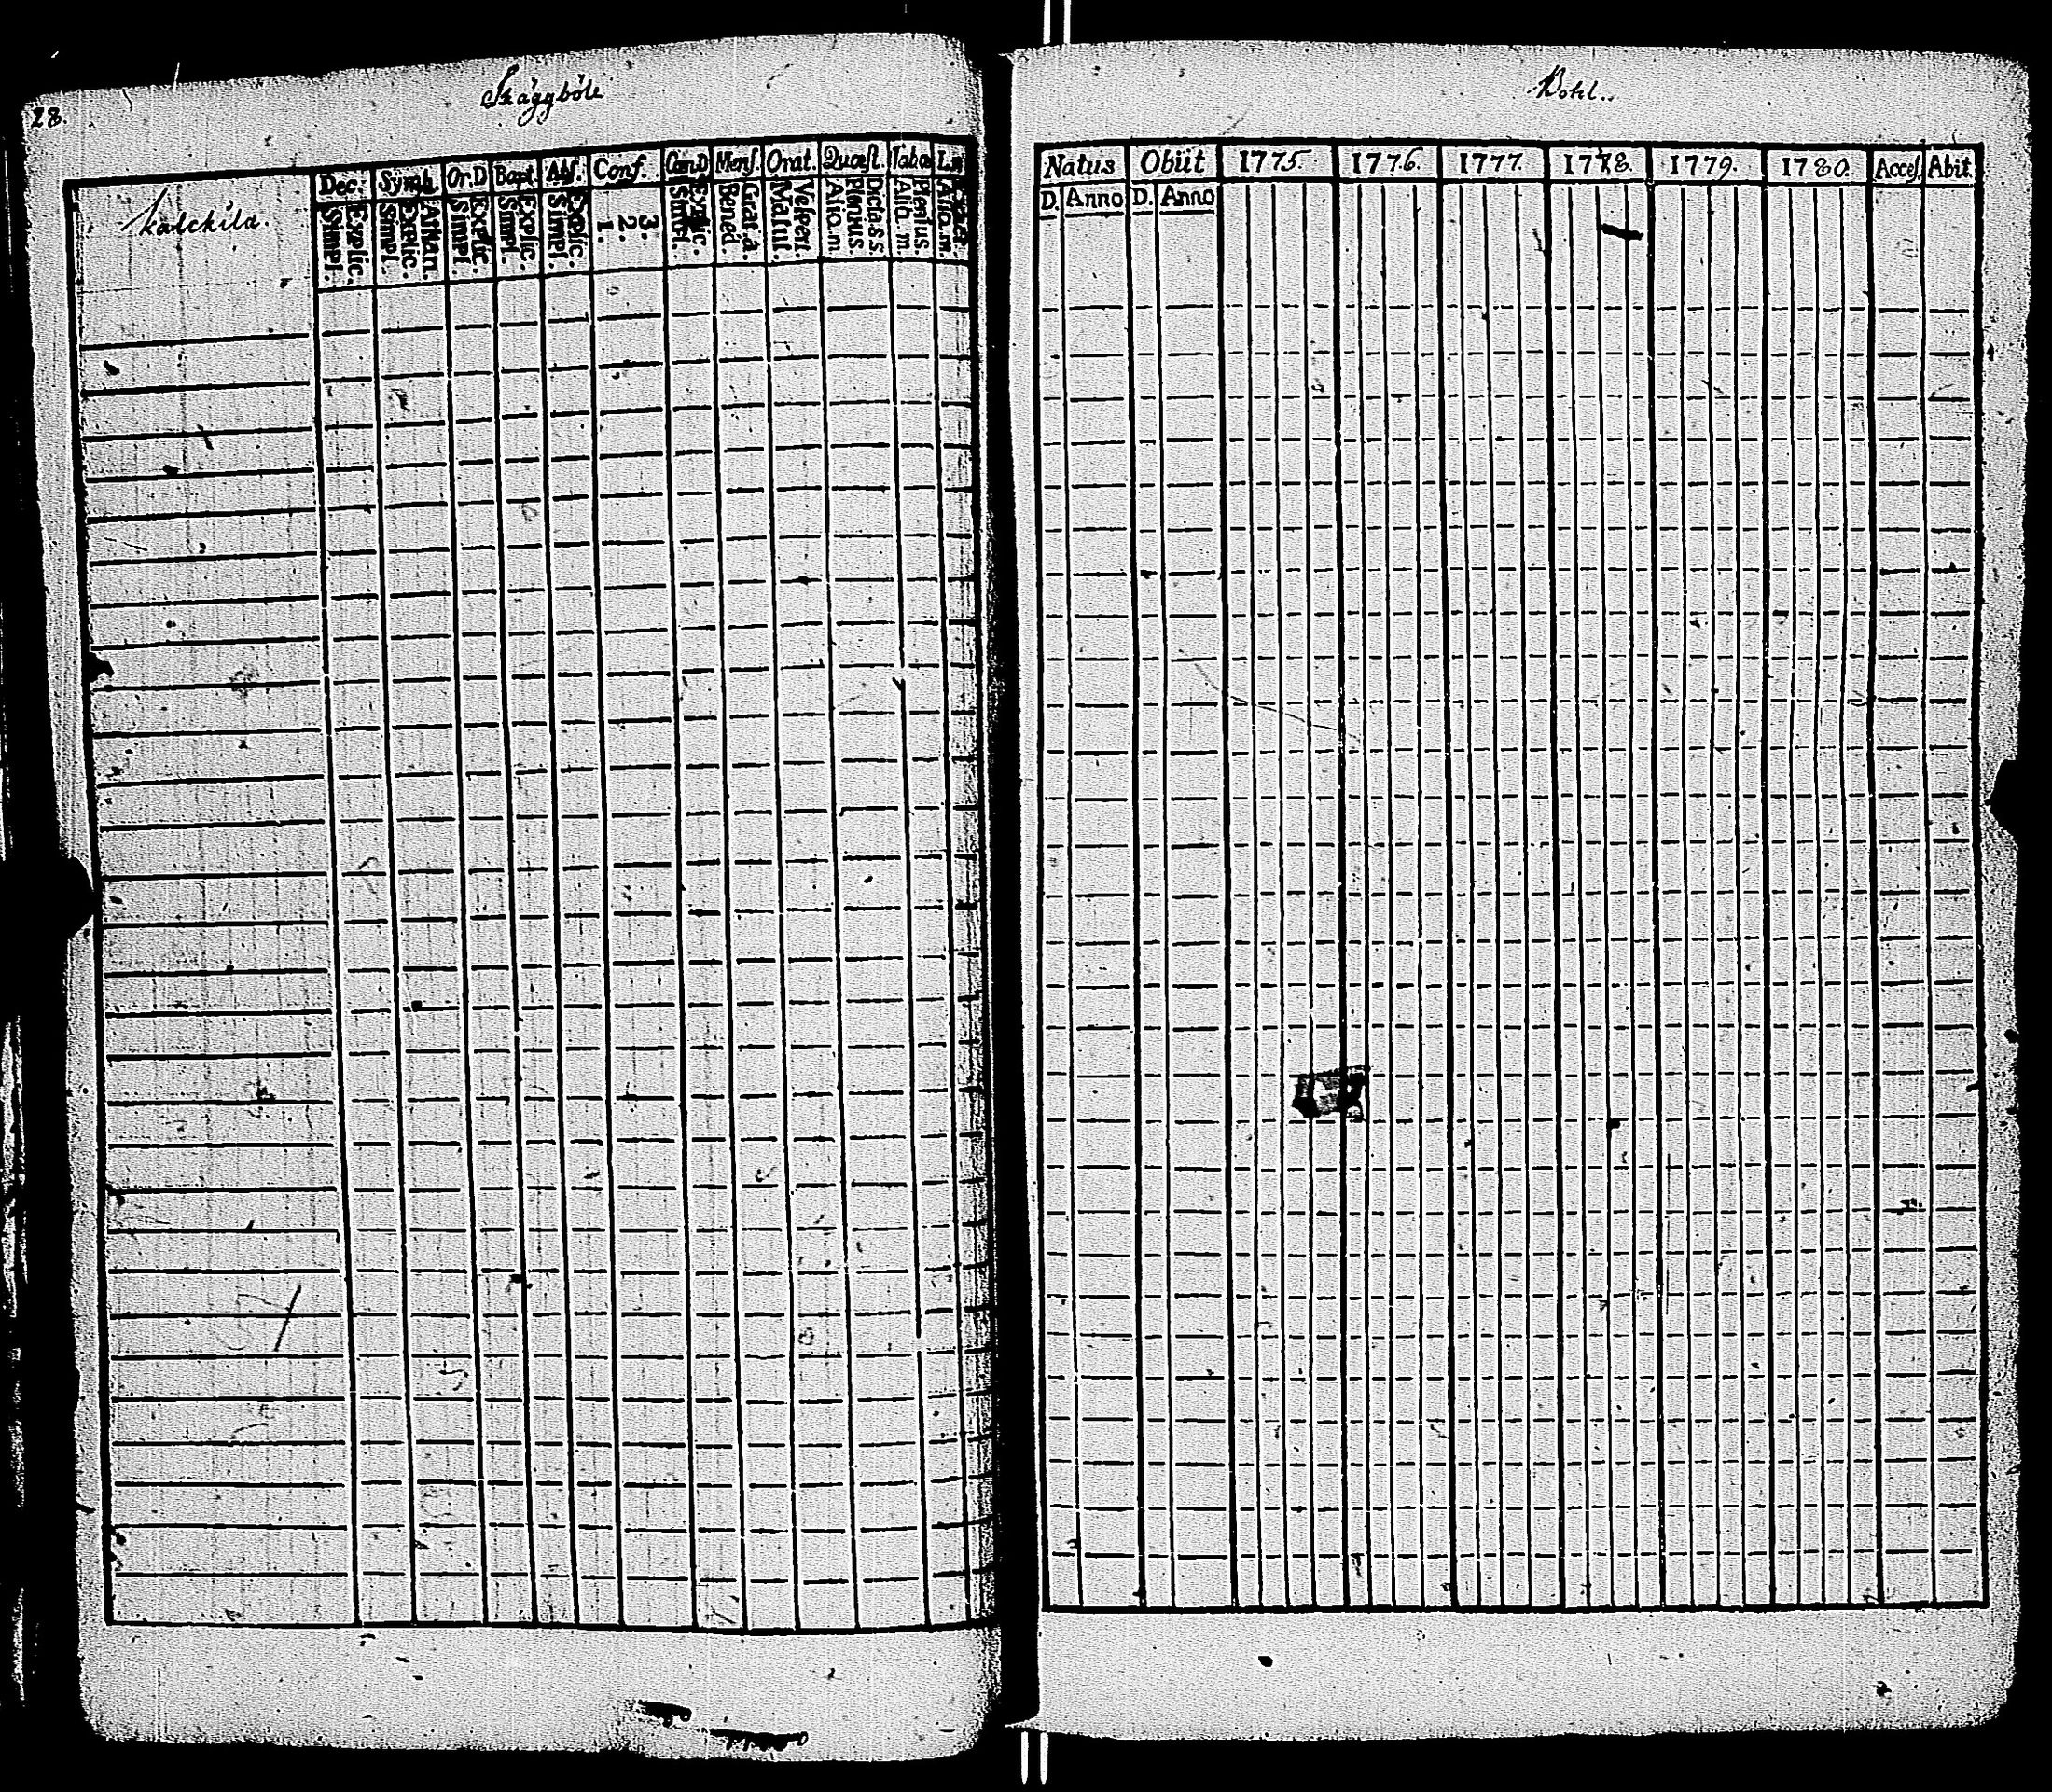 28.
Skäggböle
Bohl..
Kalckila.
Dec. Symb. Or.D Bapt. Abſ. Conf. Can.D Menſ. Orat. Quæſt. Taba
Simpl. Explic. Simpl. Explic. Athan. Simpl. Explic. Simpl. Explic. Simpl. Explic. 1. 2. 3. Simpl. Explic. Bened. Grat.a. Matut. Veſpert. Aliq.m Plenius Dicta s.s. Aliq.m. Plenius. Aliq.m.
Natus Obiit 1775. 1776. 1777. 1778. 1779. 1780. Acceſ. Abit.
D. Anno D. Anno